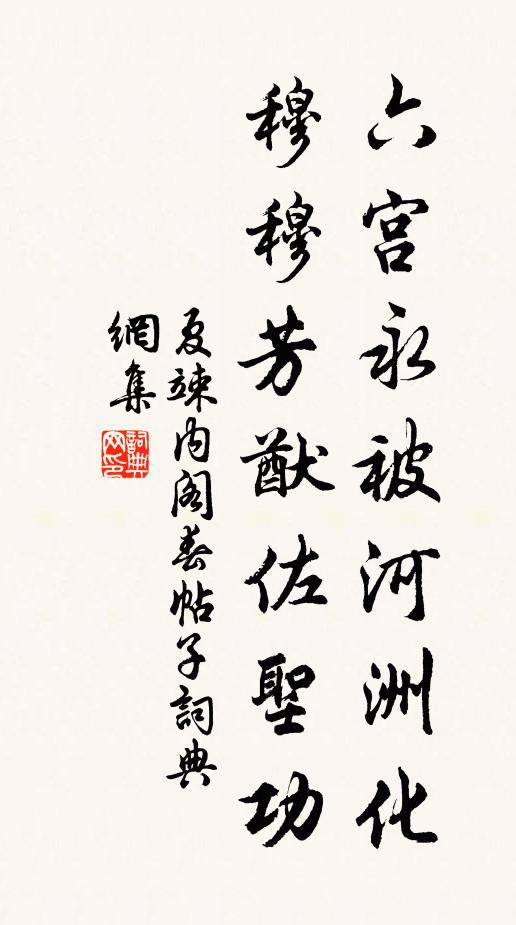 六宮永被河洲化
穆穆芳猷佐聖功
夏竦内閣春帖子詞典
網集
詞典網印